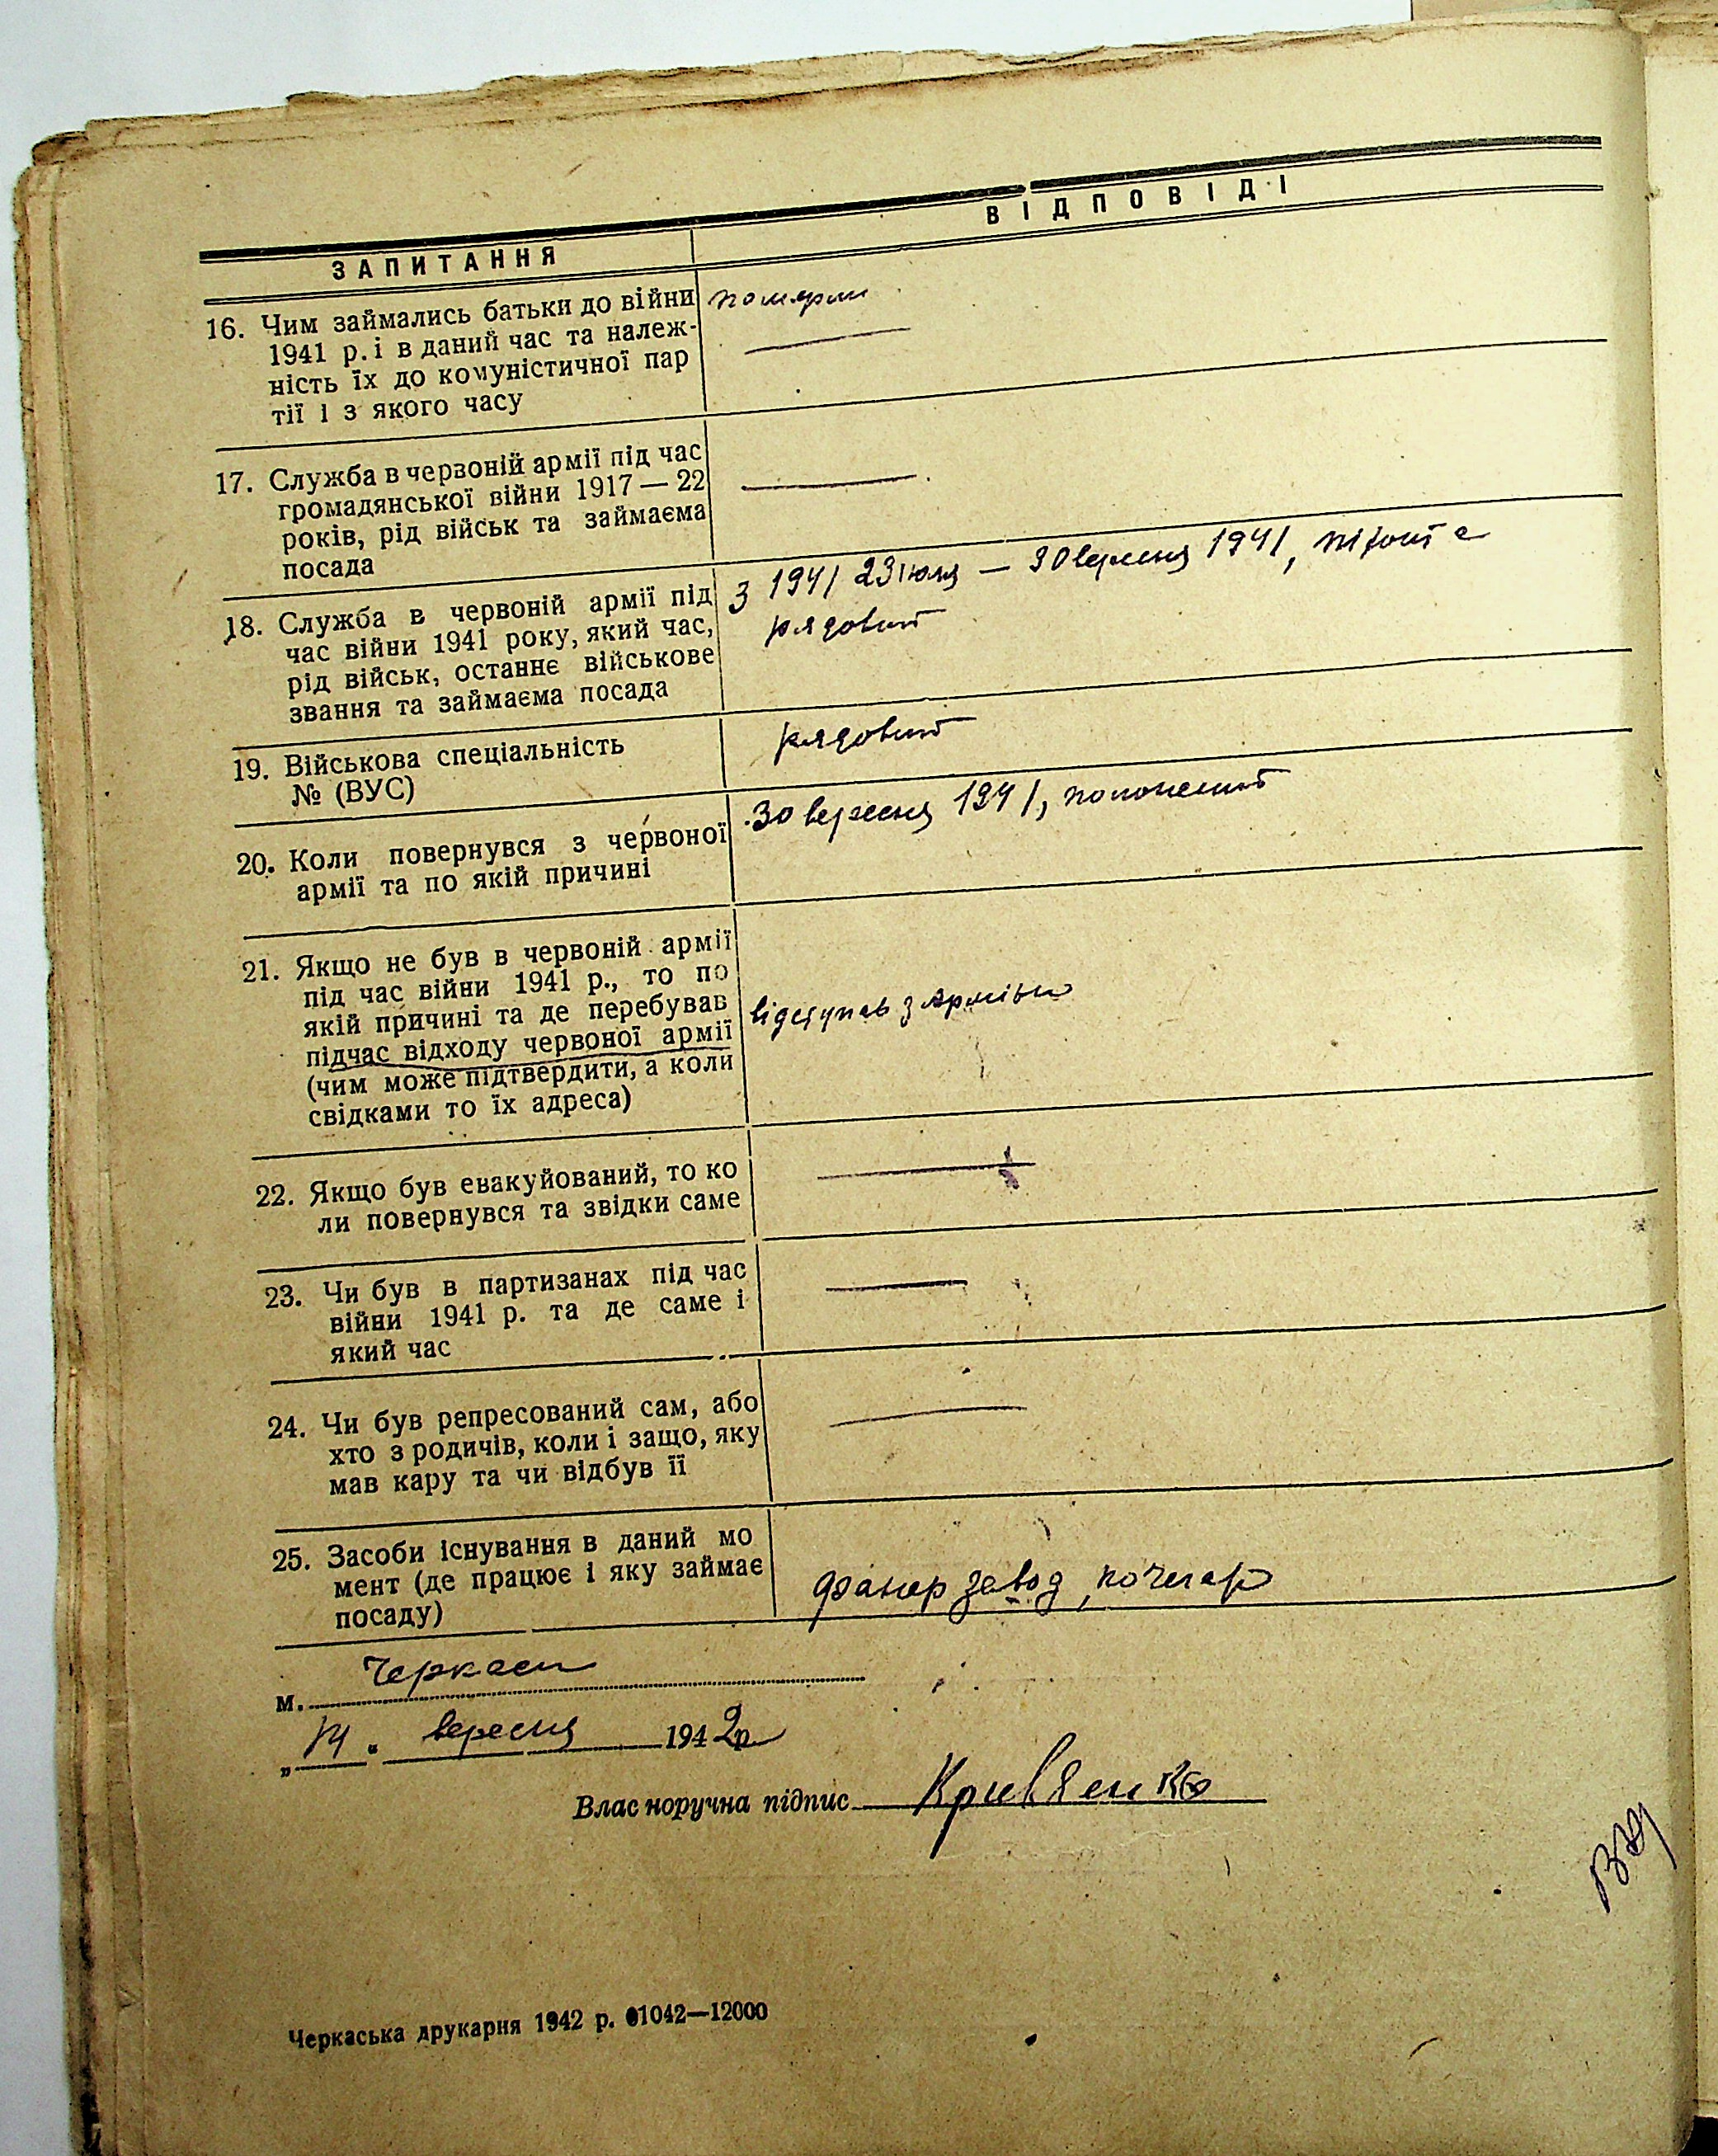 ЗАПИТАННЯ
ВІДПОВІДІ
16. Чим займались батьки до війни
1941 р. і в даний час та належ-
ність їх до комуністичної пар
тії і з якого часу
померли
17. Служба в червоній армії під час
громадянської війни 1917—22
років, рід військ та займаєма
посада
18. Служба в червоній армії під
час війни 1941 року, який час,
рід військ, останнє військове
звання та займаєма посада
З 1941 23 июля — 30 вересня 1941,
рядовий
19. Військова спеціальність
№ (ВУС)
рядовий
20. Коли повернувся з червоної
армії та по якій причині
30 вересня 1941, полонений
21. Якщо не був в червоній армії
під час війни 1941 р., то по
якій причині та де перебував
підчас відходу червоної армії
(чим може підтвердити, а коли
свідками то їх адреса)
відступав з Армією
22. Якщо був евакуйований, то ко
ли повернувся та звідки саме
23. Чи був в партизанах під час
війни 1941 р. та де саме і
який час
24. Чи був репресований сам, або
хто з родичів, коли і защо, яку
мав кару та чи відбув її
25. Засоби існування в даний мо
мент (де працює і яку займає
посаду)
фанер завод, кочегар
м. Черкаси
„14" вересня 1942р
Власноручна підпис Кривенко
Черкаська друкарня 1942 р. 01042—12000